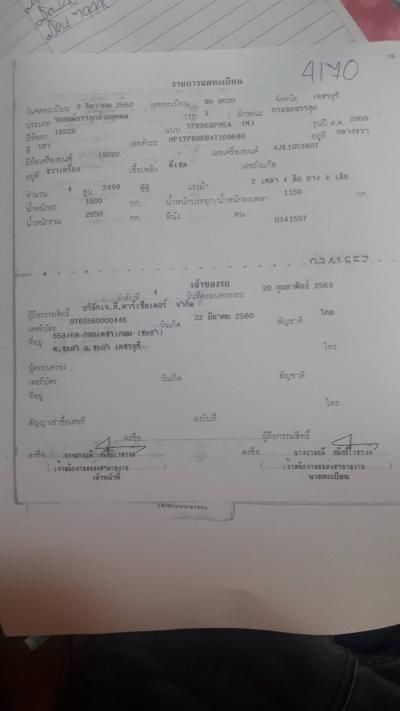 4170
รายการจดทะเบียน
วันจดทะเบียน 9 ธันวาคม 2552 เลขทะเบียน บม 9020 จังหวัด เพชรบุรี
ประเภท รถยนต์บรรทุกส่วนบุคคล (รย. 3 ) ลักษณะ กระบะบรรทุก
ยี่ห้อรถ ISUZU แบบ TFR86BPM5A (M) รุ่นปี ค.ศ. 2009
สี เทา เลขตัวรถ MP1TFR86BAT109680 อยู่ที่ กลางขวา
ยี่ห้อเครื่องยนต์ ISUZU เลขเครื่องยนต์ 4JK1GU3897
อยู่ที่ ขวาเครื่อง เชื้อเพลิง ดีเซล เลขถังแก๊ส
จำนวน 4 สูบ 2499 ซีซี แรงม้า 2 เพลา 4 ล้อ ยาง 4 เส้น
น้ำหนักรถ 1500 กก. น้ำหนักบรรทุก/น้ำหนักลงเพลา 1150 กก.
น้ำหนักรวม 2650 กก. ที่นั่ง คน 0341557
0341557
เจ้าของรถ
ลำดับที่ 4 วันที่ครอบครองรถ 20 กุมภาพันธ์ 2563
ผู้ถือกรรมสิทธิ์ บริษัทเจ.ที.คาร์เซ็นเตอร์ จำกัด
เลขที่บัตร 0765560000446 วันเกิด 22 มีนาคม 2560 สัญชาติ ไทย
ที่อยู่ 653/69 ถนนเพชรเกษม (ชะอำ)
ต.ชะอำ อ.ชะอำ เพชรบุรี โทร.
ผู้ครอบครอง
เลขที่บัตร วันเกิด สัญชาติ
ที่อยู่
โทร.
สัญญาเช่าซื้อเลขที่ ลงวันที่
ลงชื่อ ผู้ถือกรรมสิทธิ์
ลงชื่อ ลงชื่อ
เจ้าหน้าที่ นายทะเบียน